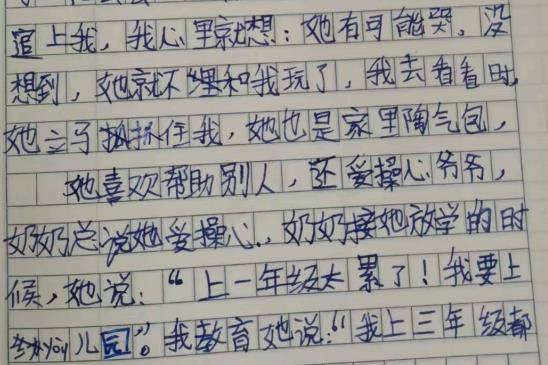 追上我，我心里就想：她有可能哭，没
想到，她就不理和我玩了，我去看看时，
她立马抓住我，她也是家里陶气包，
她喜欢帮助别人，还爱操心爷爷，
奶奶总说她爱操心．，奶奶接她放学的时
候，她说：“上一年级太累了！我要上
幼儿园”。我教育她说：“我上三年级都